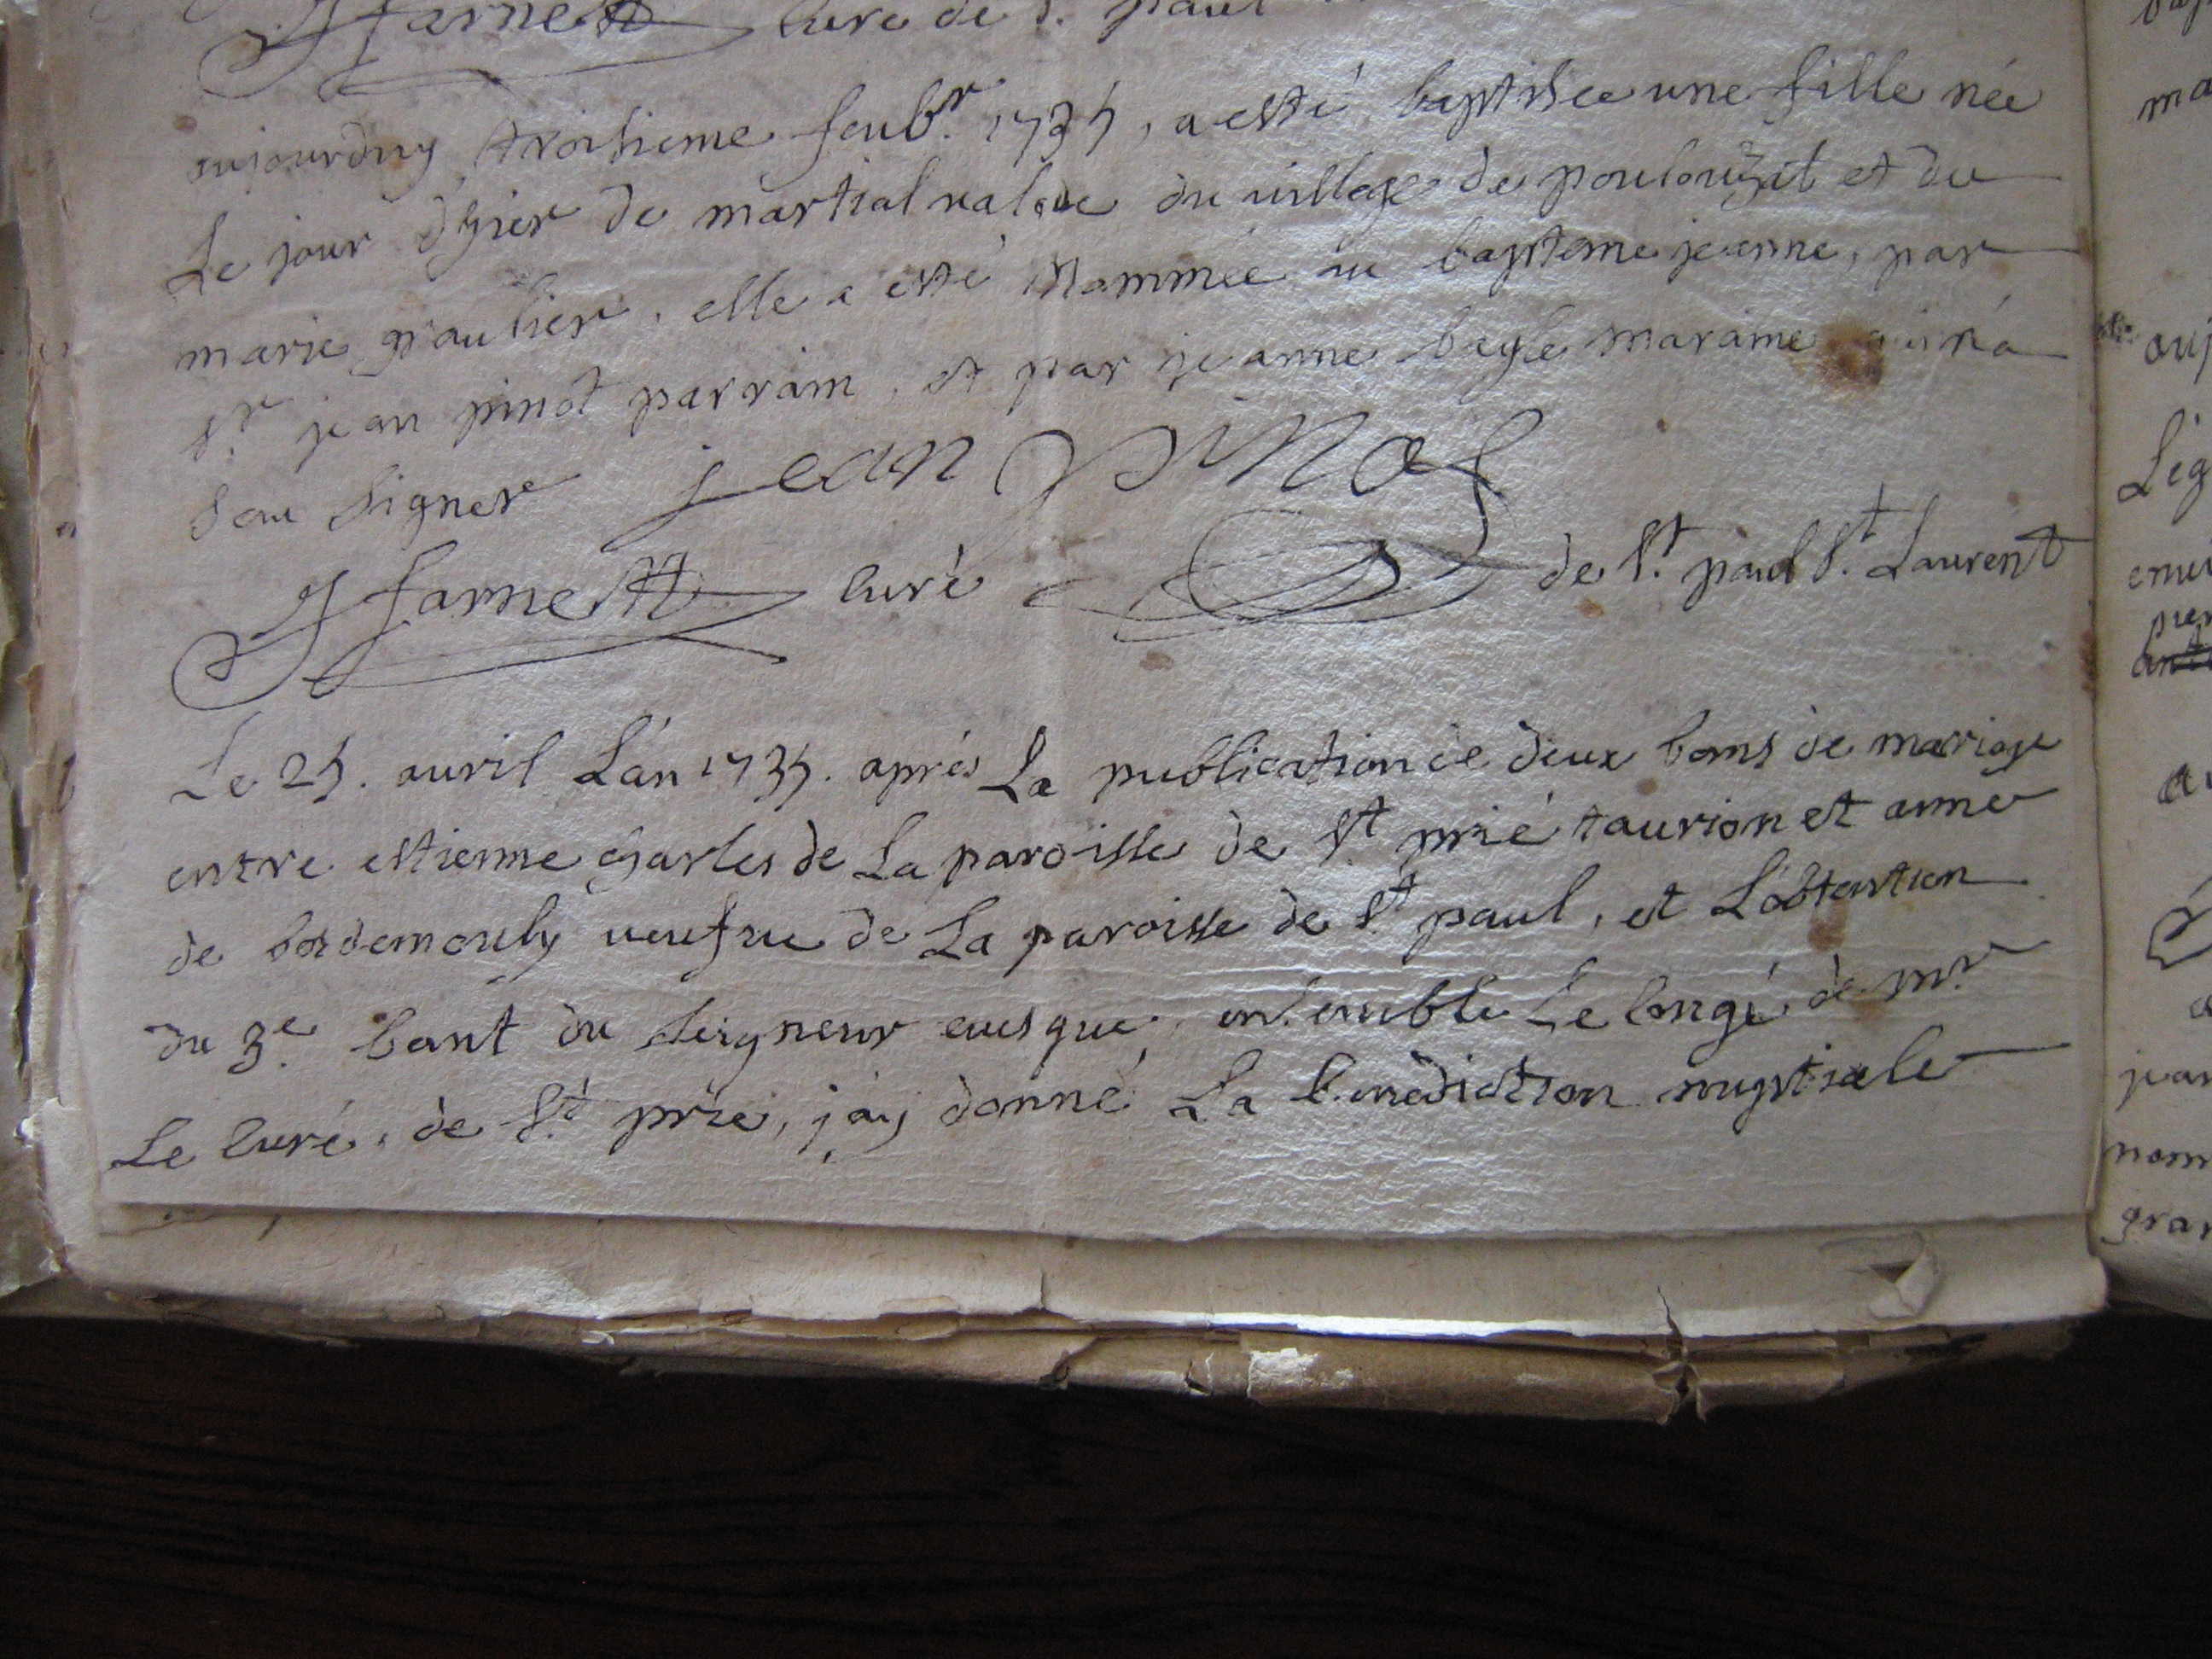 farne curé de St. paul
aujourdhuy troisieme feubr. 1735, a esté baptisée une fille née
Le jour d'hier de martial du village de poulouzat et de
marie gaultier, elle a esté nommée au bapteme jeanne, par
Sr. jean pinot parrain, et par jeanne bayle maraine qui n'a
sceu signer jean pinot
farne curé de St. paul St. Laurent
Le 25. auril L'an 1735. aprés La publication de deux bans de mariage
entre estienne charles de La paroisse de St prié taurion et anne
de bordemouly ueufue de La paroisse de St paul, et L'obtention
du 3e. bant du Seigneur euesque, ensemble Le congé de mr.
Le curé, de St. prie, j'ay donné La benediction nuptiale